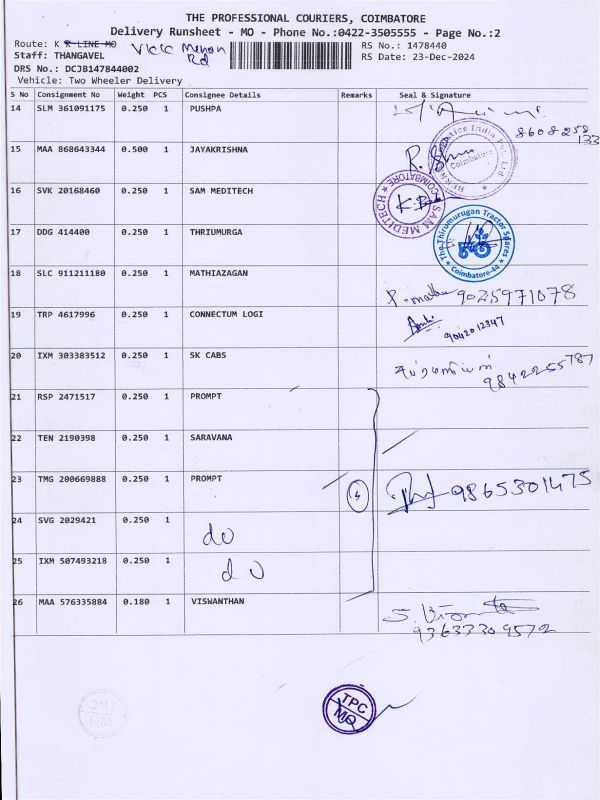 THE PROFESSIONAL COURIERS, COIMBATORE
Delivery Runsheet - MO - Phone No.:0422-3505555 - Page No.:2
Route: K R LINE MO VKK Menon Rd
RS No.: 1478440
Staff: THANGAVEL
RS Date: 23-Dec-2024
DRS No.: DCJB147844002
Vehicle: Two Wheeler Delivery
S No Consignment No Weight PCS Consignee Details Remarks Seal & Signature
14 SLM 361091175 0.250 1 PUSHPA
8608258133
15 MAA 868643344 0.500 1 JAYAKRISHNA
Coimbatore
16 SVK 20168460 0.250 1 SAM MEDITECH
SAM MEDITECH COIMBATORE
17 DDG 414400 0.250 1 THRIUMURGA
The Thirumurugan Tractor Spares
Coimbatore-44
18 SLC 911211180 0.250 1 MATHIAZAGAN
9025971078
19 TRP 4617996 0.250 1 CONNECTUM LOGI
9042012347
20 IXM 303383512 0.250 1 SK CABS
9842255787
21 RSP 2471517 0.250 1 PROMPT
22 TEN 2190398 0.250 1 SARAVANA
23 TMG 200669888 0.250 1 PROMPT
9865301475
24 SVG 2029421 0.250 1 do
25 IXM 507493218 0.250 1 do
26 MAA 576335884 0.180 1 VISWANTHAN
93633309572
TPC
MO
TPC
MO